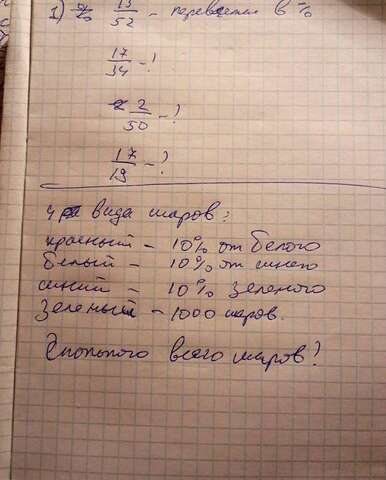 1) 13/52 – переведем в %
17/34 – !
2/50 – !
17/19 – !
4 вида шаров:
красный – 10% от белого
белый – 10% от синего
синий – 10% зеленого
Зеленый – 1000 шаров.
Сколького всего шаров?